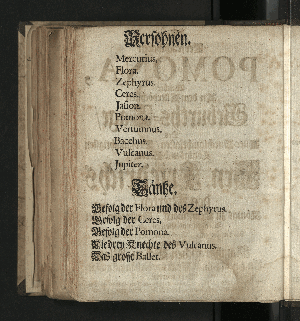 Persohnen.
Mercurius.
Flora.
Zephyrus.
Ceres.
Jasion.
Pomona.
Vertumnus.
Bacchus.
Vulcanus.
Jupiter.
Täntze.
Gefolg der Flora und des Zephyrus.
Gefolg der Ceres.
Gefolg der Pomona.
Die drey Knechte des Vulcanus.
Das große Ballet.